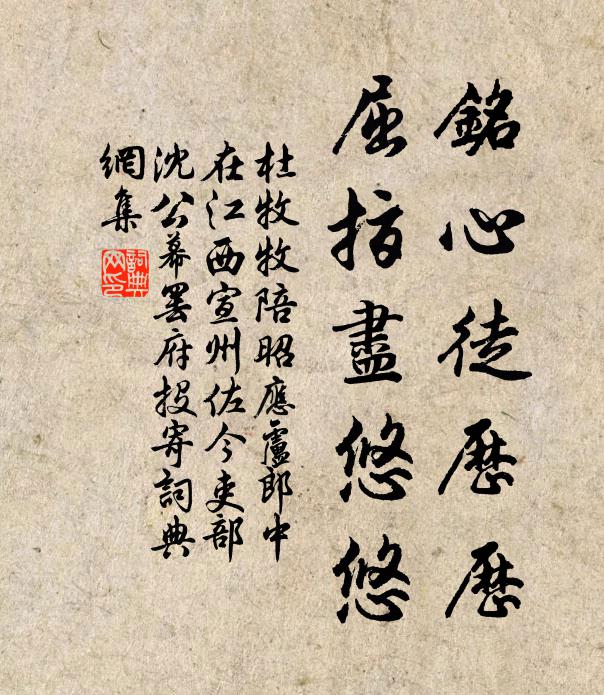 銘心徒歷歷
屈指盡悠悠
杜牧牧陪昭應盧郎中
在江西宣州佐今吏部
沈公幕罷府投寄詞典
網集
詞典
网印